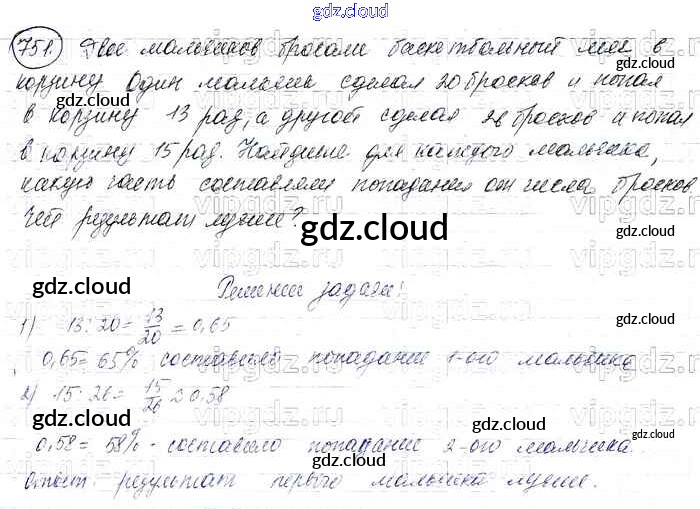 gdz.cloud
751. Двое мальчиков бросали баскетбольный мяч в
корзину. Один мальчик сделал 20 бросков и попал
в корзину 13 раз, а другой сделал 26 бросков и попал
в корзину 15 раз. Найдите для каждого мальчика,
какую часть составляют попадания от числа бросков.
Чей результат лучше?
gdz.cloud
Решение задачи!
1) 13:20=13/20=0,65
0,65=65% составило попадание 1-ого мальчика
2) 15:26=15/26≈0,58
0,58=58%-составило попадание 2-ого мальчика.
Ответ: результат первого мальчика лучше.
gdz.cloud